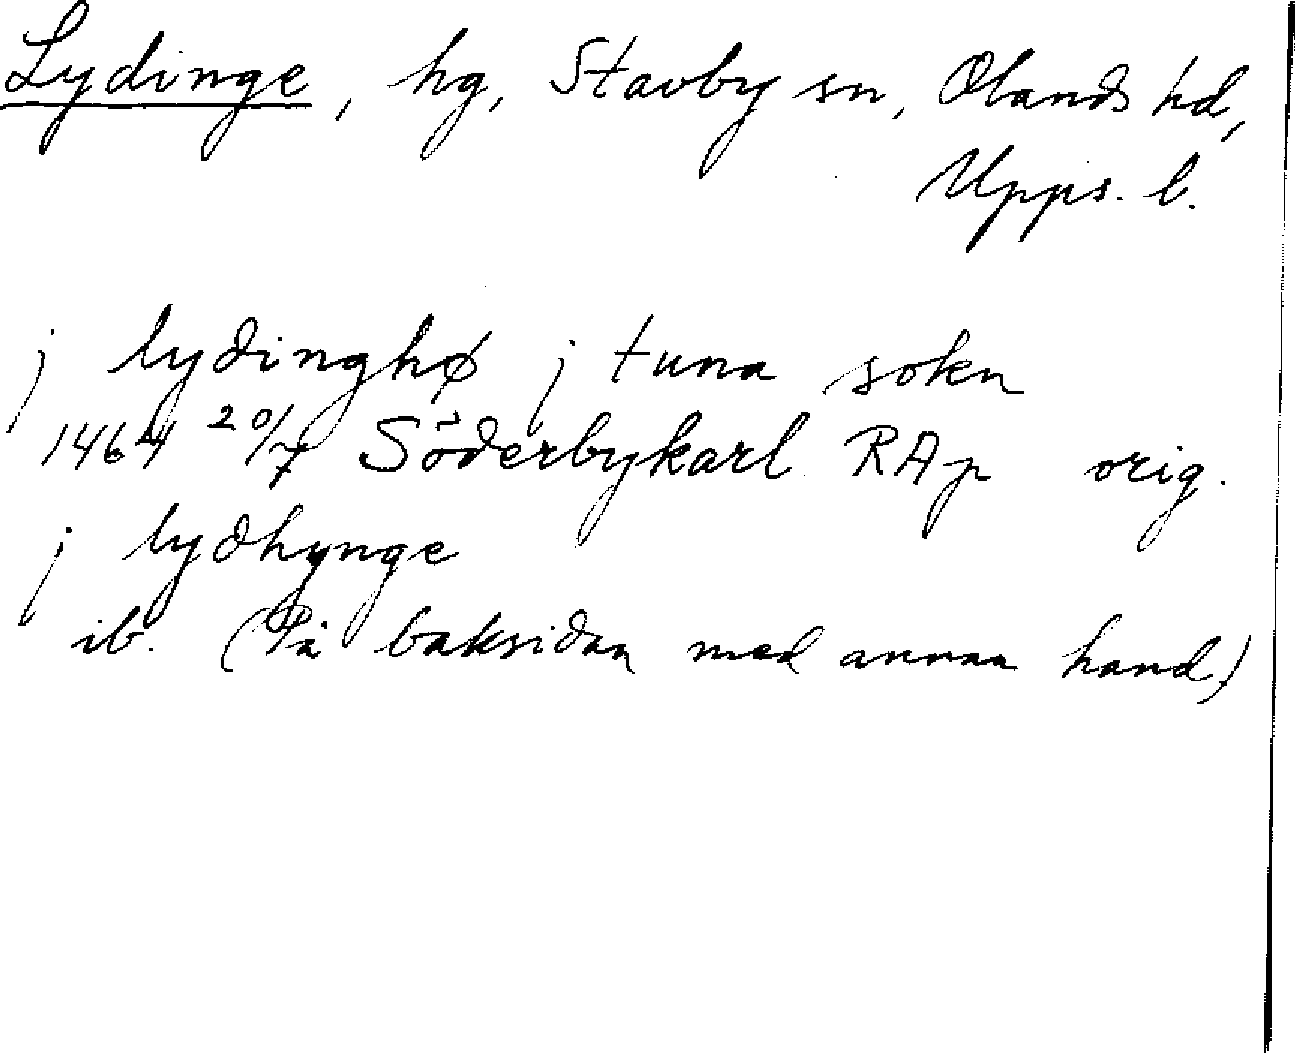 Lydinge, hg, Stavby sn, Olands hd,
Upps. l.
j lydinghø j tuna sokn
1464 20/7 Söderbykarl RAp orig.
j lydhynge
ib. (På baksidan med annan hand)